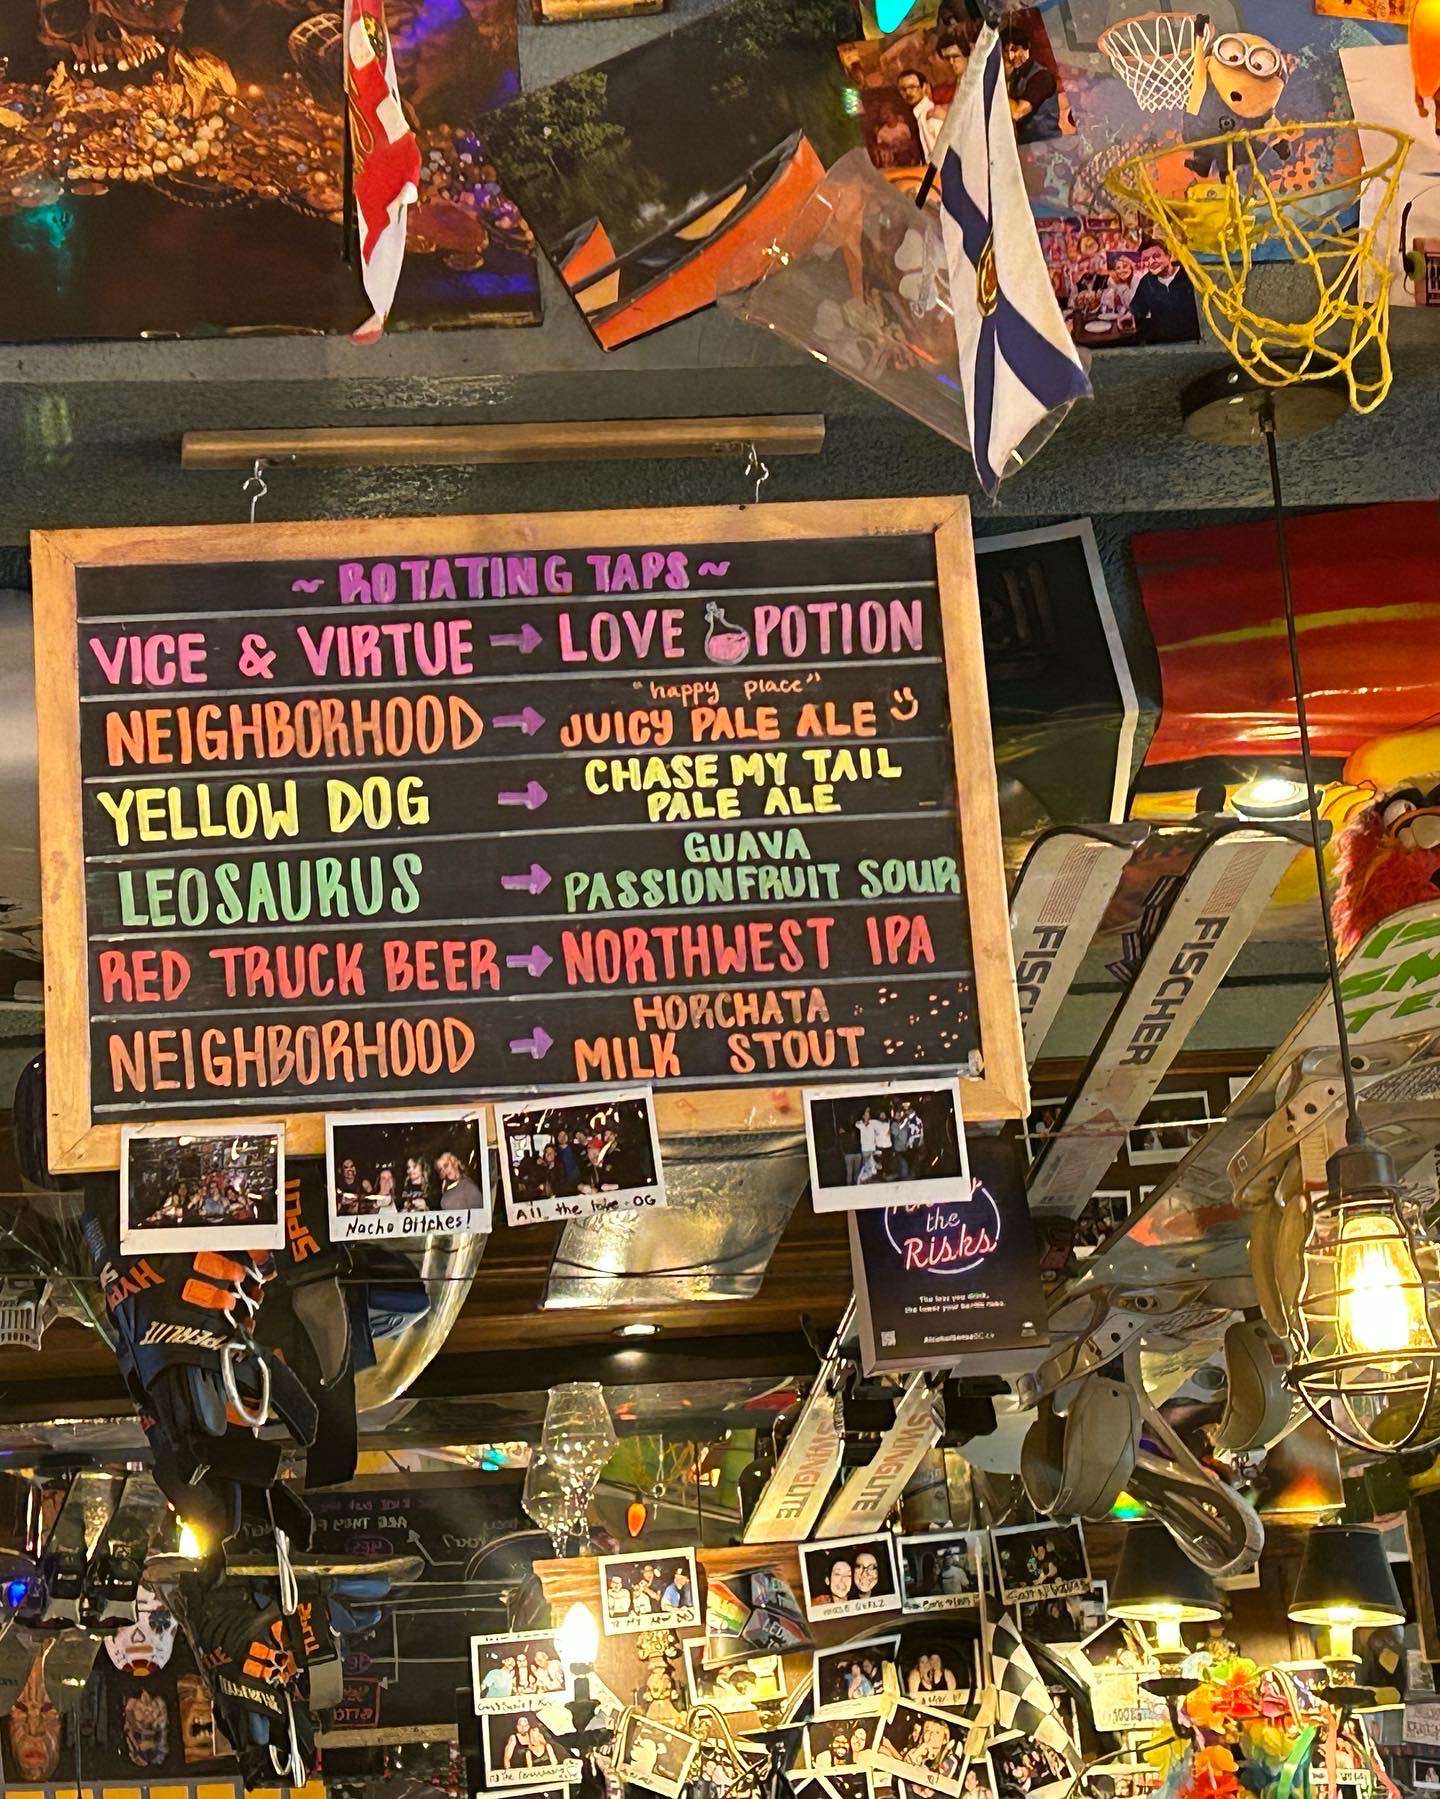 ~ ROTATING TAPS ~
VICE & VIRTUE → LOVE POTION
NEIGHBORHOOD → "happy place"
JUICY PALE ALE
YELLOW DOG → CHASE MY TAIL
PALE ALE
LEOSAURUS → GUAVA
PASSIONFRUIT SOUR
RED TRUCK BEER → NORTHWEST IPA
NEIGHBORHOOD → HORCHATA
MILK STOUT
Nacho Bitches!
All the love - OG
the
Risks
The less you drink,
FISCHER
FISCHER
SPLIT
HYPERLITE
SWINGLITE
SWINGLITE